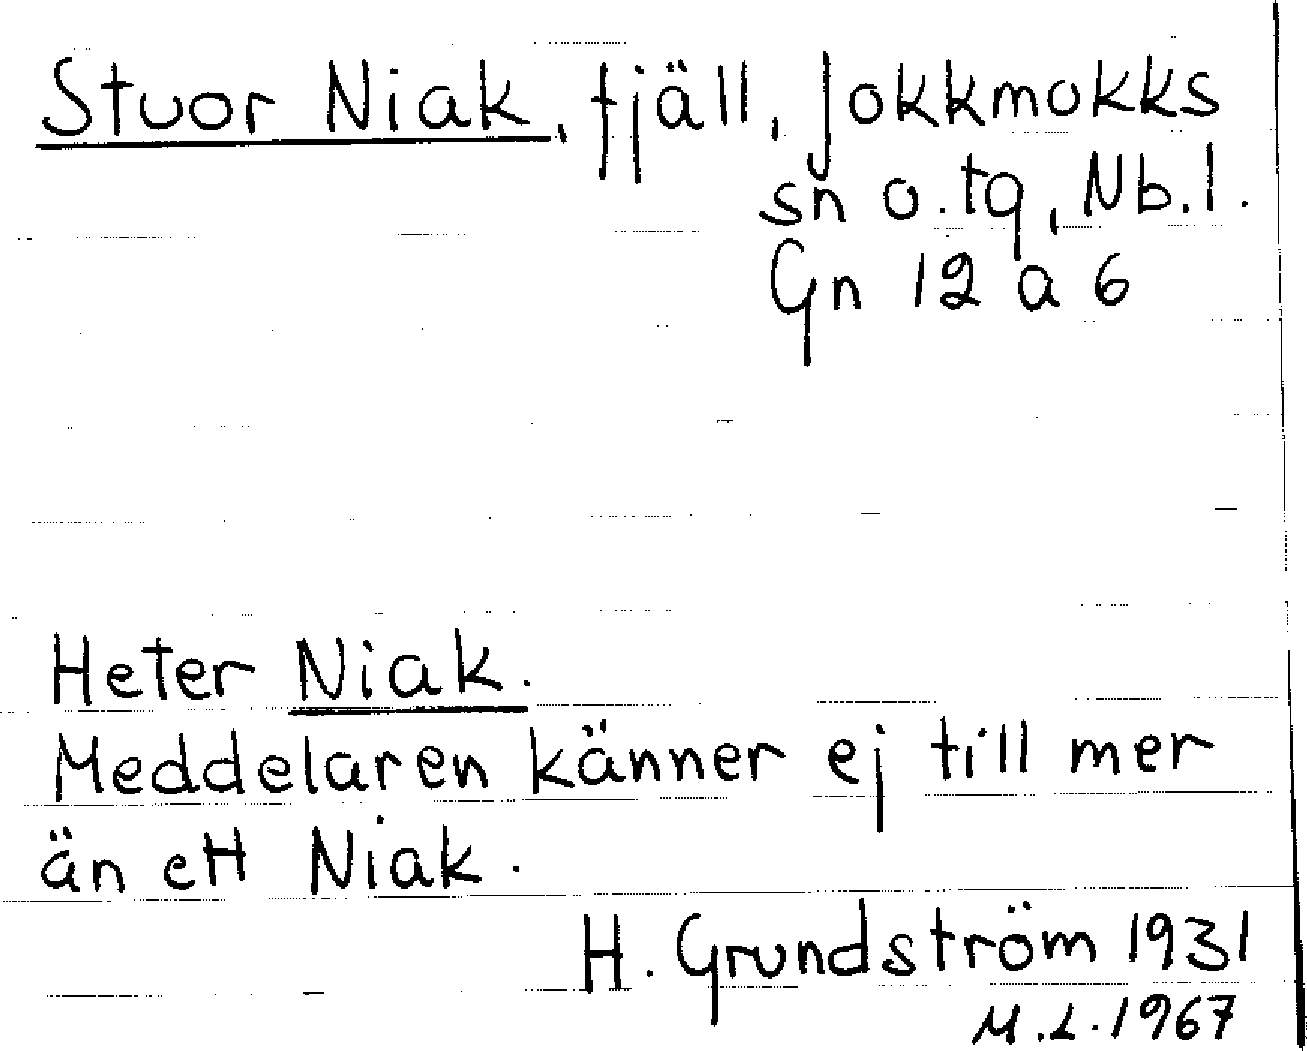 Stuor Niak, fjäll, Jokkmokks
sn o. tg, Nb. l.
Gn 12 a 6
Heter Niak.
Meddelaren känner ej till mer
än ett Niak.
H. Grundström 1931
M.L. 1967